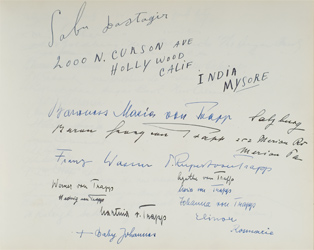 Sabu Dastagir
2000 N. CURSON AVE
HOLLYWOOD
CALIF.
INDIA
MYSORE
Baroness Maria von Trapp
Salzburg
Baron Georg von Trapp
252 Merion Rd
Merion Pa
Franz Wasner
Rupert von Trapp
Agathe von Trapp
Werner von Trapp
Maria von Trapp
Hedwig von Trapp
Johanna von Trapp
Martina v. Trapp
Eleonore
Rosmarie
+ Baby Johannes